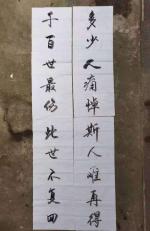 多少人痛悼斯人难再得
千百世最伤此世不复回